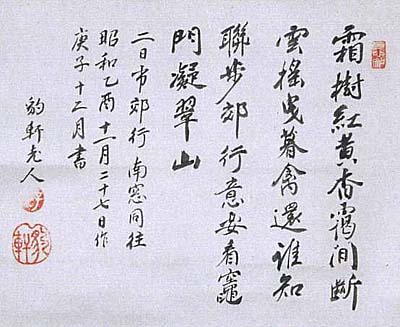 霜樹紅黄杳靄間断
雲搖曳暮禽還誰知
聯步郊行意要看竈
門凝翠山
二日市郊行 南窓同往
昭和乙酉十一月二十七日作
庚子十二月書
豹軒老人
豹軒